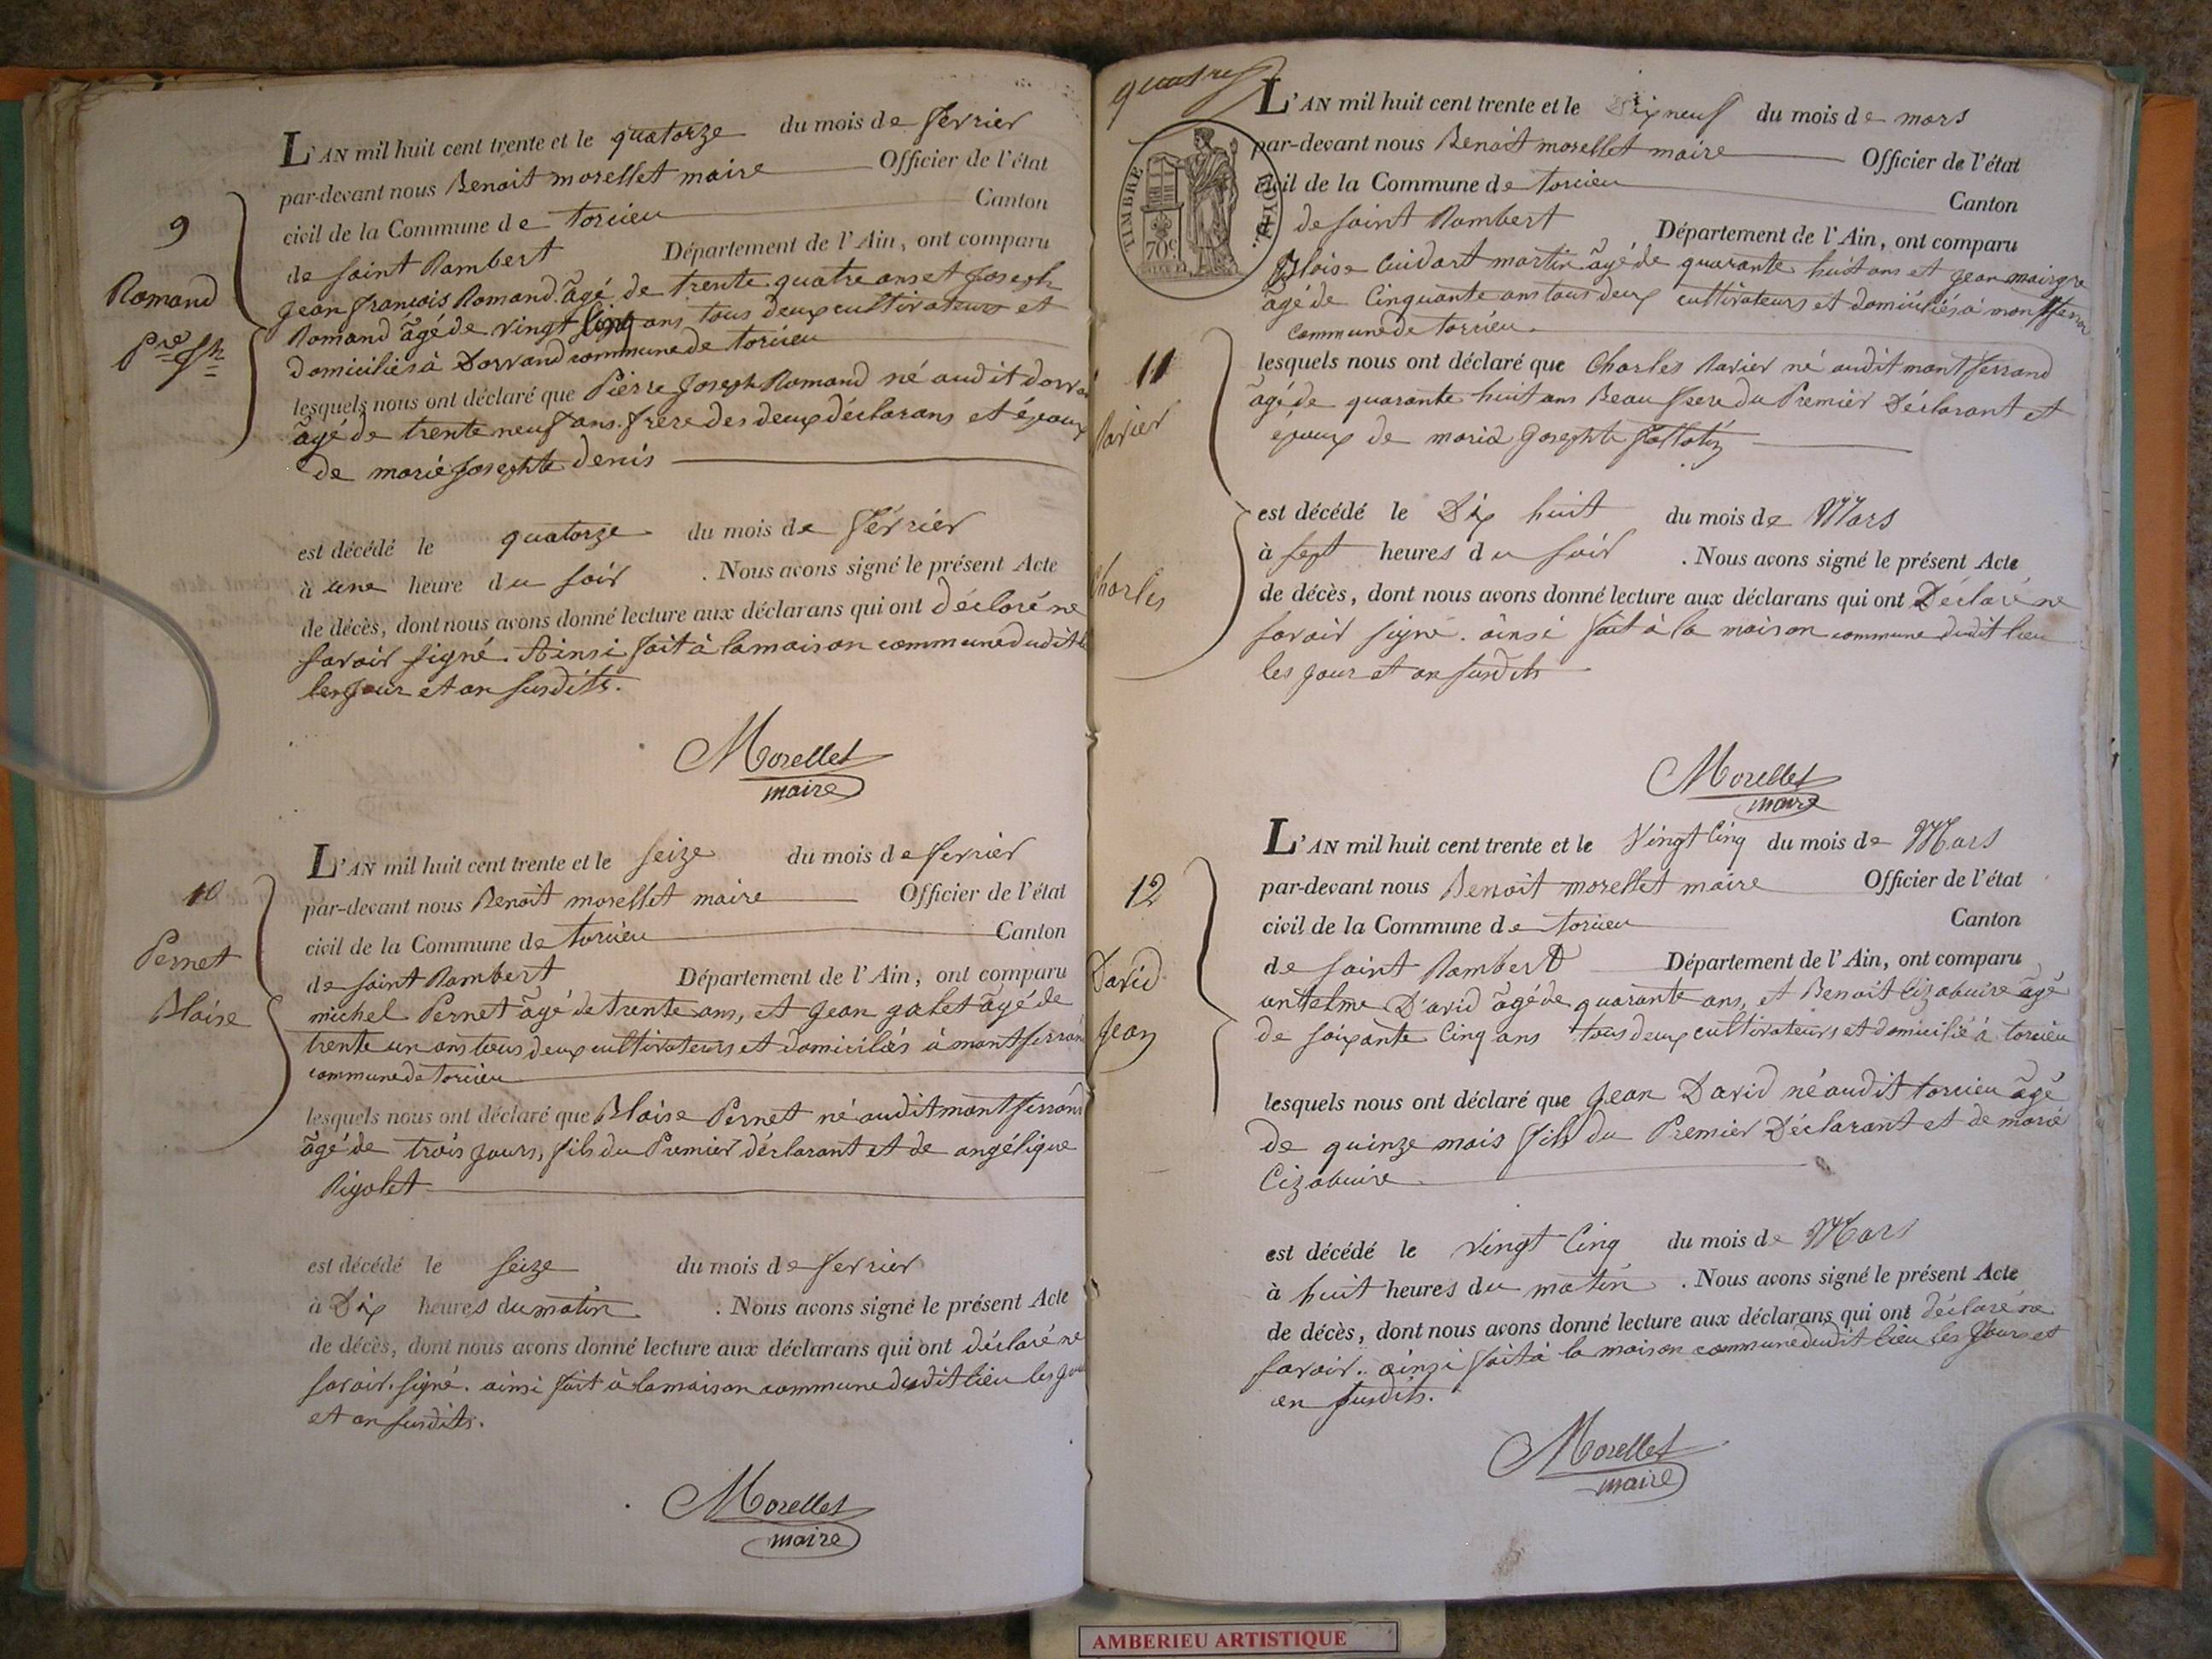 9
Romand
Pre Jh
L'AN mil huit cent trente et le quatorze du mois de fevrier
par-devant nous Benoit morellet maire Officier de l'état
civil de la Commune de torcieu Canton
de saint Rambert Département de l'Ain, ont comparu
jean françois Romand âgé de trente quatre ans et joseph
Romand âgé de vingt cinq ans tous deux cultivateurs et
domiciliés à Dorvand commune de torcieu
lesquels nous ont déclaré que Pierre joseph Romand né audit dorvan
âgé de trente neuf ans frère des deux déclarans et époux
de marie josephte denis
est décédé le quatorze du mois de février
à une heure du soir . Nous avons signé le présent Acte
de décès, dont nous avons donné lecture aux déclarans qui ont déclaré ne
savoir signé. Ainsi fait à la maison commune dudit
les jour et an susdits.
Morellet
maire
10
Pernet
Blaise
L'AN mil huit cent trente et le seize du mois de fevrier
par-devant nous Benoit morellet maire Officier de l'état
civil de la Commune de torcieu Canton
de saint Rambert Département de l'Ain, ont comparu
michel Pernet âgé de trente ans, et jean galet âgé de
trente un ans tous deux cultivateurs et domiciliés à montferrand
commune de torcieu
lesquels nous ont déclaré que Blaise Pernet né audit montferrand
âgé de trois jours, fils du Premier déclarant et de angélique
Rigolet
est décédé le seize du mois de fevrier
à Dix heures du matin . Nous avons signé le présent Acte
de décès, dont nous avons donné lecture aux déclarans qui ont déclaré ne
savoir signé. ainsi fait à la maison commune dudit lieu les jour
et an susdits.
Morellet
maire
quatre
TIMBRE ROYAL
70c
11
Ravier
Charles
L'AN mil huit cent trente et le Dix neuf du mois de mars
par-devant nous Benoit morellet maire Officier de l'état
civil de la Commune de torcieu Canton
de saint Rambert Département de l'Ain, ont comparu
Bloise Cuidart martin âgé de quarante huit ans et jean maigre
âgé de Cinquante ans tous deux cultivateurs et domiciliés à montferran
commune de torcieu
lesquels nous ont déclaré que Charles Ravier né audit montferrand
âgé de quarante huit ans Beau frere du Premier Déclarant et
époux de marie josephte
est décédé le Dix huit du mois de Mars
à sept heures du soir . Nous avons signé le présent Acte
de décès, dont nous avons donné lecture aux déclarans qui ont Déclaré ne
savoir signé. ainsi fait à la maison commune dudit lieu
les jour et an susdits
Morellet
maire
12
David
Jean
L'AN mil huit cent trente et le Vingt Cinq du mois de Mars
par-devant nous Benoit morellet maire Officier de l'état
civil de la Commune de torcieu Canton
de saint Rambert Département de l'Ain, ont comparu
antelme David âgé de quarante ans, et Benoit Cizabuire âgé
de soixante Cinq ans tous deux cultivateurs et domicilié à torcieu
lesquels nous ont déclaré que Jean David né audit torcieu âgé
de quinze mois fils du Premier Déclarant et de marie
Cizabuire
est décédé le vingt Cinq du mois de Mars
à huit heures du matin . Nous avons signé le présent Acte
de décès, dont nous avons donné lecture aux déclarans qui ont déclaré ne
savoir. ainsi fait à la maison commune dudit lieu les jour et
an susdits.
Morellet
maire
AMBERIEU ARTISTIQUE